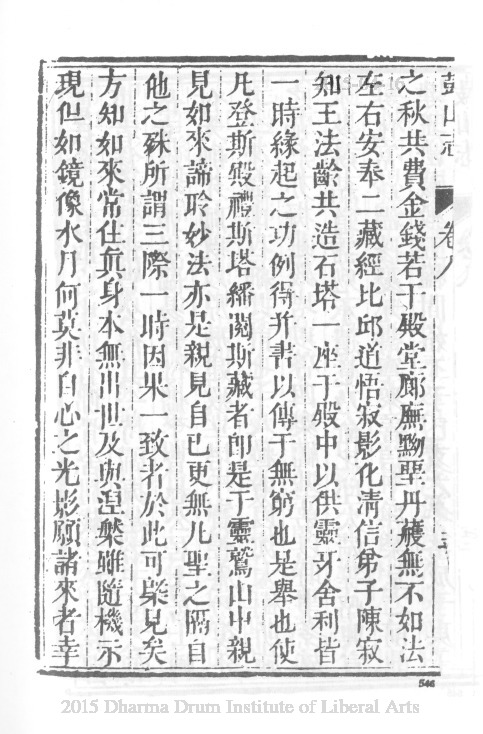 鼓山志 卷八
之秋共費金錢若于殿堂廊廡黝堊丹雘無不如法
左右安奉二藏經比邱道悟寂影化淸信弟子陳寂
知王法齡共造石塔一座于殿中以供靈牙舍利皆
一時緣起之功例得并書以傳于無窮也是舉也使
凡登斯殿禮斯塔繙閱斯藏者卽是于靈鷲山中親
見如來諦聆妙法亦是親見自已更無凡聖之隔自
他之殊所謂三際一時因果一致者於此可槩見矣
方知如來常住眞身本無出世及與湼槃雖隨機示
現但如鏡像水月何莫非自心之光影願諸來者幸
546
2015 Dharma Drum Institute of Liberal Arts